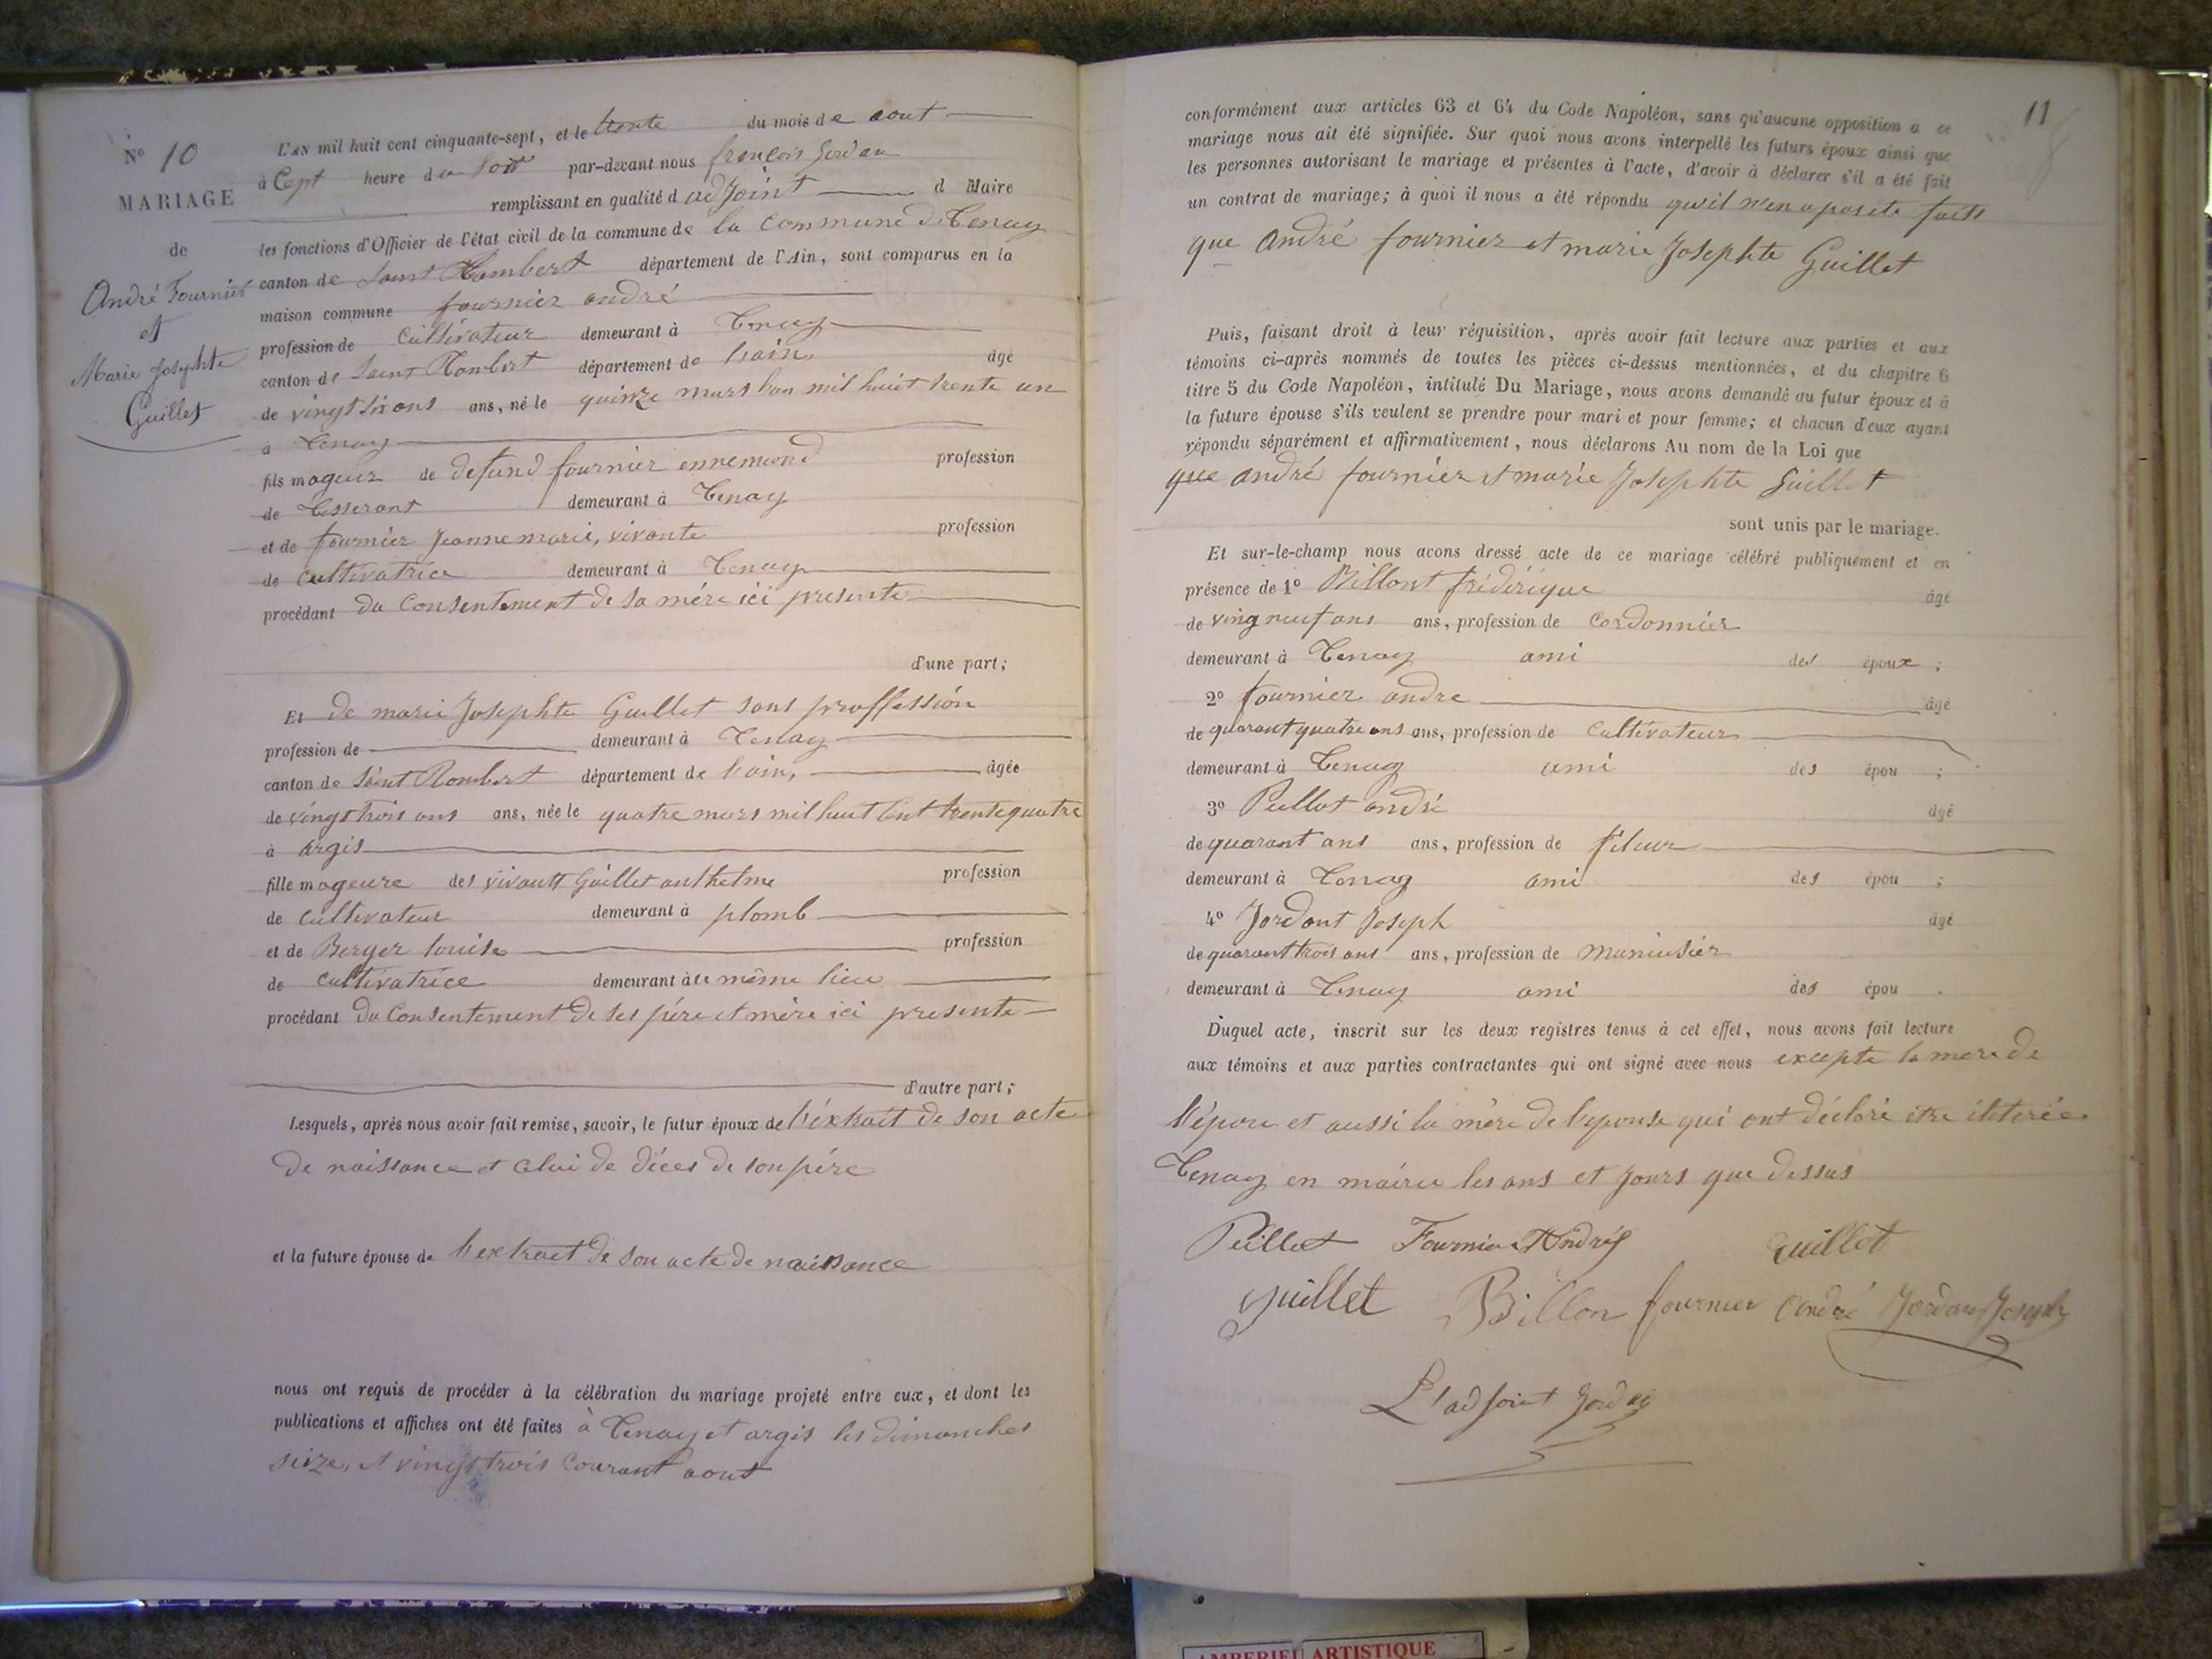 N° 10
MARIAGE
de
André Fournier
et
Marie Josephte
Guillet
L'AN mil huit cent cinquante-sept, et le trente du mois de aout
à Cept heure du soir par-devant nous françois Jordan
remplissant en qualité d adjoint d Maire
les fonctions d'Officier de l'état civil de la commune de la commune de Tenay
canton de Saint Rambert département de l'Ain, sont comparus en la
maison commune fournier andré
profession de cultivateur demeurant à Tenay
canton de Saint Rambert département de lain, âgé
de vingt six ans ans, né le quinze mars lan mil huit trente un
à Tenay
fils mageur de defund fournier ennemond profession
de Tisserant demeurant à Tenay
et de fournier Jeanne marie, vivante profession
de cultivatrice demeurant à Tenay
procédant du consentement de sa mére ici presente
d'une part;
Et de marie Josephte Guillet sans proffession
profession de demeurant à Tenay
canton de Saint Rambert département de lain, âgée
de vingt trois ans ans, née le quatre mars mil huit cent trente quatre
à argis
fille mageure des vivants Guillet anthelme profession
de cultivateur demeurant à plomb
et de Berger louise profession
de cultivatrice demeurant à le même lieu
procédant du consentement de ses pére et mére ici presente
d'autre part;
Lesquels, après nous avoir fait remise, savoir, le futur époux de l'éxtrait de son acte
de naissance et celui de déces de son pére
et la future épouse de l'extrait de son acte de naissance
nous ont requis de procéder à la célébration du mariage projeté entre eux, et dont les
publications et affiches ont été faites à Tenay et argis les dimanches
seize, et vingt trois courant aout
11
conformément aux articles 63 et 64 du Code Napoléon, sans qu'aucune opposition a ce
mariage nous ait été signifiée. Sur quoi nous avons interpellé les futurs époux ainsi que
les personnes autorisant le mariage et présentes à l'acte, d'avoir à déclarer s'il a été fait
un contrat de mariage; à quoi il nous a été répondu qu'il n'en a pas ete faits
que André fournier et marie Josephte Guillet
Puis, faisant droit à leur réquisition, après avoir fait lecture aux parties et aux
témoins ci-après nommés de toutes les pièces ci-dessus mentionnées, et du chapitre 6
titre 5 du Code Napoléon, intitulé Du Mariage, nous avons demandé au futur époux et à
la future épouse s'ils veulent se prendre pour mari et pour femme; et chacun d'eux ayant
répondu séparément et affirmativement, nous déclarons Au nom de la Loi que
que andré fournier et marie Josephte Guillet
sont unis par le mariage.
Et sur-le-champ nous avons dressé acte de ce mariage célébré publiquement et en
présence de 1° Billont frédérique âgé
de ving neuf ans ans, profession de cordonnier
demeurant à Tenay ami des époux ;
2° fournier andre âgé
de quarant quatre ans ans, profession de cultivateur
demeurant à Tenay ami des épou ;
3° Peillot andré âgé
de quarant ans ans, profession de fileur
demeurant à Tenay ami des épou ;
4° Jordant Joseph âgé
de quarant trois ans ans, profession de manieusier
demeurant à Tenay ami des épou .
Duquel acte, inscrit sur les deux registres tenus à cet effet, nous avons fait lecture
aux témoins et aux parties contractantes qui ont signé avec nous excepte la mere de
l'époux et aussi la mère de l'epouse qui ont déclaré être iliterée
Tenay en mairie les ans et jours que dessus
Peillot Fournier André Guillet
Guillet Billon fournier andré Jordan Joseph
L'adjoint Jordan
AMBERIEU ARTISTIQUE